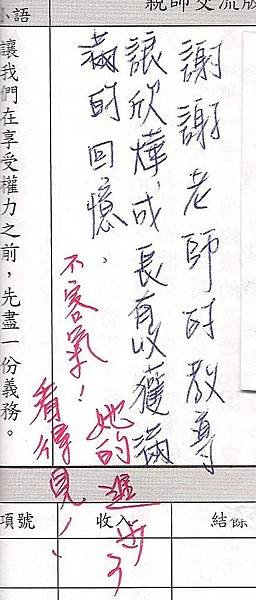 親師交流版
謝謝老師的教尊
讓欣燁成長有收獲滿
滿的回憶。
不客氣!她的進步
看得見!
小語
讓我們在享受權力之前,先盡一份義務。
項號 收入 結餘